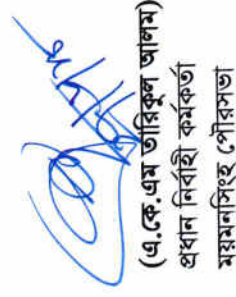 (এ.কে.এম তারিকুল আলম)
প্রধান নির্বাহী কর্মকর্তা
ময়মনসিংহ পৌরসভা